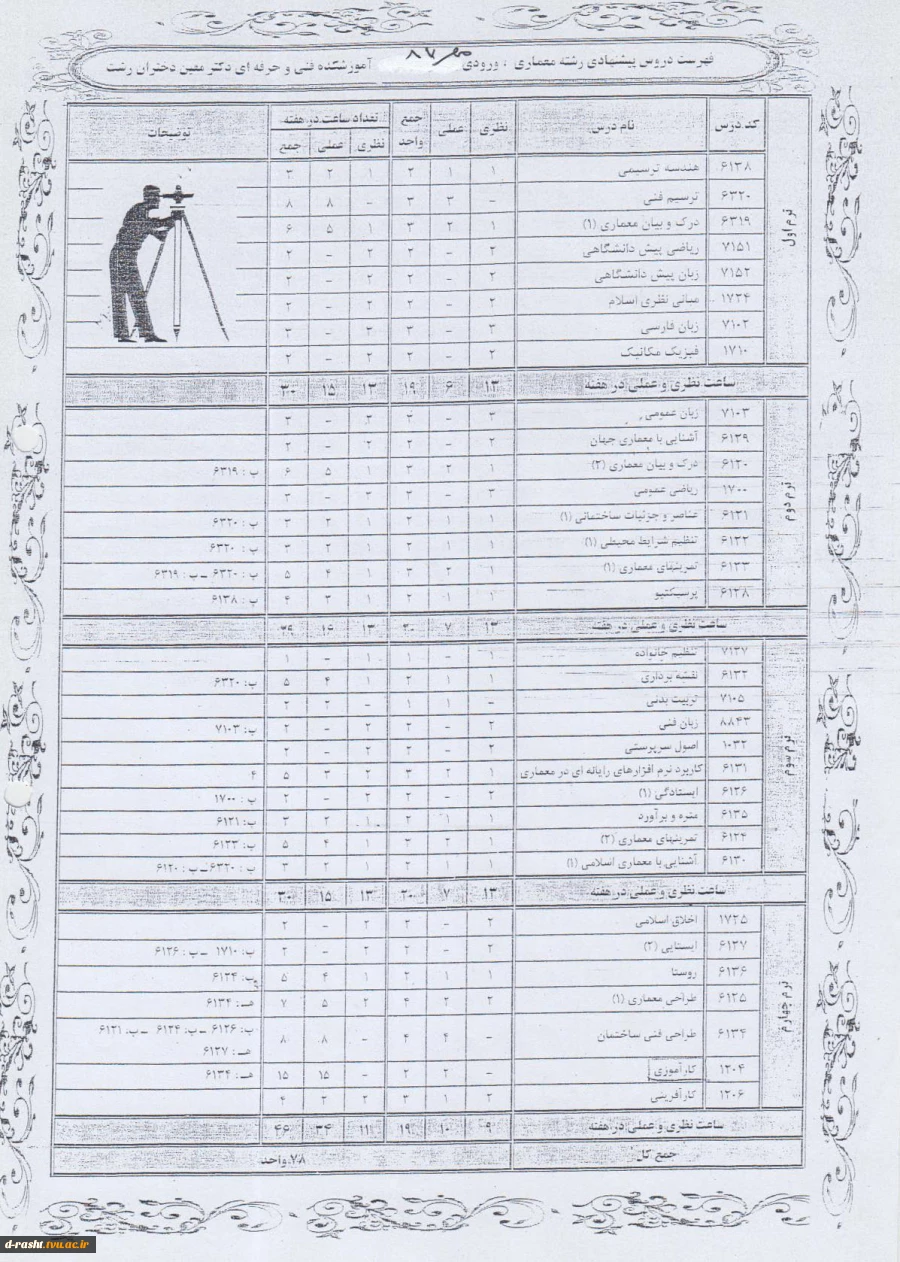 فهرست دروس پیشنهادی رشته معماری ، ورودی مهر ۸۷ آموزشکده فنی و حرفه ای دکتر معین دختران رشت
کد درس نام درس نظری عملی جمع واحد تعداد ساعت در هفته توضیحات
نظری عملی جمع
ترم اول
۶۱۳۸ هندسه ترسیمی ۱ ۱ ۲ ۱ ۲ ۳
۶۳۲۰ ترسیم فنی - ۳ ۳ - ۸ ۸
۶۳۱۹ درک و بیان معماری (۱) ۱ ۲ ۳ ۱ ۵ ۶
۷۱۵۱ ریاضی پیش دانشگاهی ۲ - ۲ ۲ - ۲
۷۱۵۲ زبان پیش دانشگاهی ۲ - ۲ ۲ - ۲
۱۷۲۴ مبانی نظری اسلام ۲ - ۲ ۲ - ۲
۷۱۰۲ زبان فارسی ۳ - ۳ ۳ - ۳
۱۷۱۰ فیزیک مکانیک ۲ - ۲ ۲ - ۲
ساعت نظری و عملی در هفته ۱۳ ۶ ۱۹ ۱۳ ۱۵ ۳۰
ترم دوم
۷۱۰۳ زبان عمومی ۳ - ۳ ۳ - ۳
۶۱۲۹ آشنایی با معماری جهان ۲ - ۲ ۲ - ۲
۶۱۲۰ درک و بیان معماری (۲) ۱ ۲ ۳ ۱ ۵ ۶ پ : ۶۳۱۹
۱۷۰۰ ریاضی عمومی ۳ - ۳ ۳ - ۳
۶۱۲۱ عناصر و جزئیات ساختمانی (۱) ۱ ۱ ۲ ۱ ۲ ۳ پ : ۶۳۲۰
۶۱۲۲ تنظیم شرایط محیطی (۱) ۱ ۱ ۲ ۱ ۲ ۳ پ : ۶۳۲۰
۶۱۲۳ تمرینهای معماری (۱) ۱ ۲ ۳ ۱ ۴ ۵ پ : ۶۳۲۰ ـ پ : ۶۳۱۹
۶۱۲۸ پرسپکتیو ۱ ۱ ۲ ۱ ۳ ۴ پ : ۶۱۳۸
ساعت نظری و عملی در هفته ۱۳ ۷ ۲۰ ۱۳ ۱۶ ۲۹
ترم سوم
۷۱۲۷ تنظیم خانواده ۱ - ۱ ۱ - ۱
۶۱۳۲ نقشه برداری ۱ ۱ ۲ ۱ ۴ ۵ پ: ۶۳۲۰
۷۱۰۵ تربیت بدنی - ۱ ۱ - ۲ ۲
۸۸۴۳ زبان فنی ۲ - ۲ ۲ - ۲ پ: ۷۱۰۳
۱۰۳۲ اصول سرپرستی ۲ - ۲ ۲ - ۲
۶۱۳۱ کاربرد نرم افزارهای رایانه ای در معماری ۱ ۲ ۳ ۲ ۳ ۵ ۴
۶۱۲۶ ایستادگی (۱) ۲ - ۲ ۲ - ۲ پ : ۱۷۰۰
۶۱۳۵ متره و برآورد ۱ ۱ ۲ ۱ ۲ ۳ پ: ۶۱۲۱
۶۱۲۴ تمرینهای معماری (۲) ۱ ۲ ۳ ۱ ۴ ۵ پ: ۶۱۲۳
۶۱۳۰ آشنایی با معماری اسلامی (۱) ۱ ۱ ۲ ۱ ۲ ۳ پ : ۶۳۲۰ ـ پ : ۶۱۲۰
ساعت نظری و عملی در هفته ۱۳ ۷ ۲۰ ۱۳ ۱۵ ۳۰
ترم چهارم
۱۷۲۵ اخلاق اسلامی ۲ - ۲ ۲ - ۲
۶۱۲۷ ایستایی (۲) ۲ - ۲ ۲ - ۲ پ: ۱۷۱۰ ـ پ : ۶۱۲۶
۶۱۳۶ روستا ۱ ۱ ۲ ۱ ۴ ۵ پ: ۶۱۲۴
۶۱۲۵ طراحی معماری (۱) ۲ ۲ ۴ ۲ ۵ ۷ هـ : ۶۱۳۴
۶۱۳۴ طراحی فنی ساختمان - ۴ ۴ - ۸ ۸ پ: ۶۱۲۶ ـ پ: ۶۱۲۴ ـ پ: ۶۱۲۱
هـ : ۶۱۲۷
۱۲۰۴ کارآموزی - ۲ ۲ - ۱۵ ۱۵ هـ : ۶۱۳۴
۱۲۰۶ کارآفرینی ۲ ۱ ۳ ۲ ۲ ۴
ساعت نظری و عملی در هفته ۹ ۱۰ ۱۹ ۱۱ ۳۴ ۴۶
جمع کل ۷۸ واحد
d-rasht.tvu.ac.ir